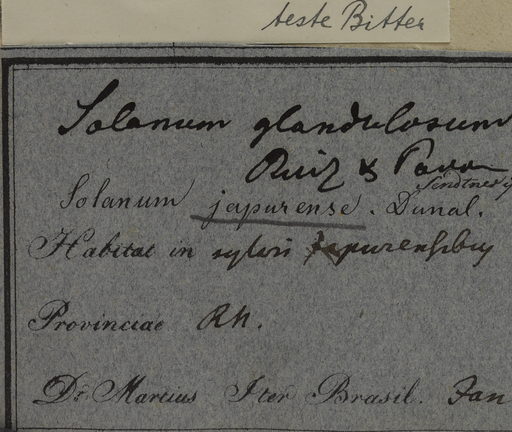 teste Bitter
Solanum glandulosum
Ruiz & Pavon
Sendtner
Solanum japurense. Dunal.
Habitat in sylvis japurensibus
Provinciae Rh.
Dr. Martius Iter Brasil. Jan